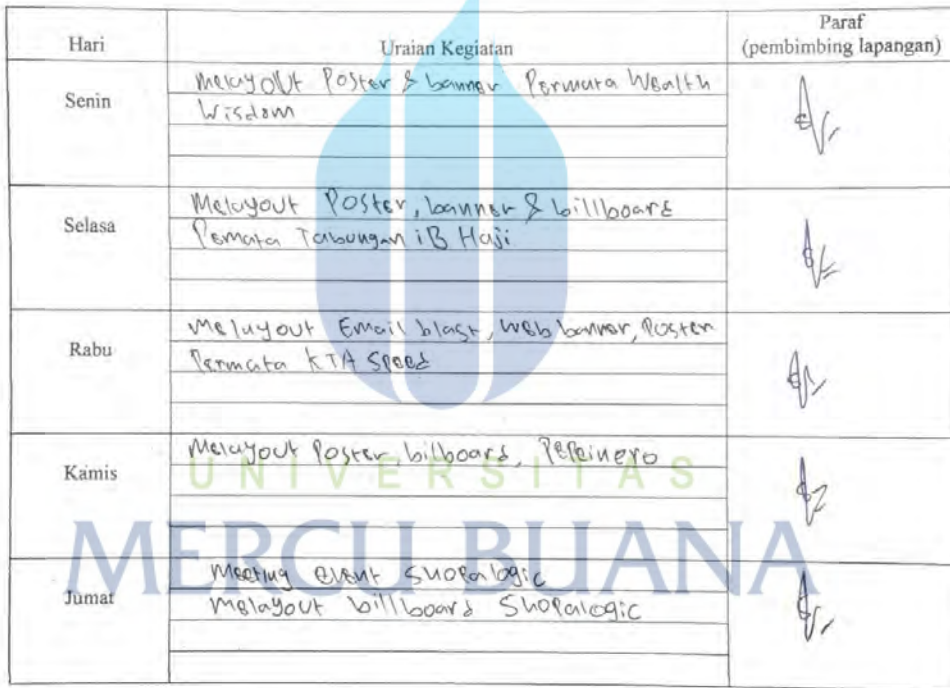 Hari Uraian Kegiatan Paraf
(pembimbing lapangan)
Senin
Melayout Poster & banner Permata Wealth
Wisdom
Selasa
Melayout Poster, banner & billboard
Pemata Tabungan iB Haji
Rabu
Melayout Email blast, Web banner, Poster
Permata KTA Speed
Kamis
Melayout Poster bilboard, Pepeinero
UNIVERSITAS
MERCU BUANA
Jumat
Meeting event Shopalogic
Melayout billboard Shopalogic